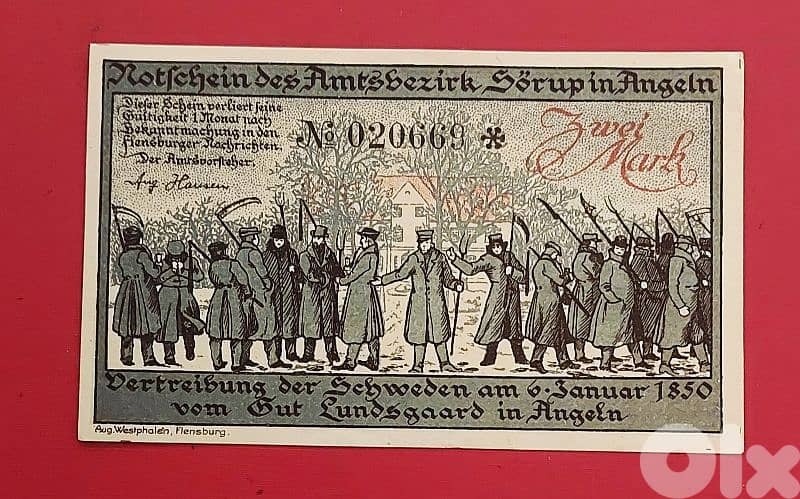 Notschein des Amtsbezirk Sörup in Angeln
Dieser Schein verliert seine
Gültigkeit 1 Monat nach
Bekanntmachung in den
Flensburger Nachrichten.
Der Amtsvorsteher.
Aug Hansen
No 020669
Zwei
Mark
Vertreibung der Schweden am 6. Januar 1850
vom Gut Lundsgaard in Angeln
Aug. Westphalen, Flensburg.
olx